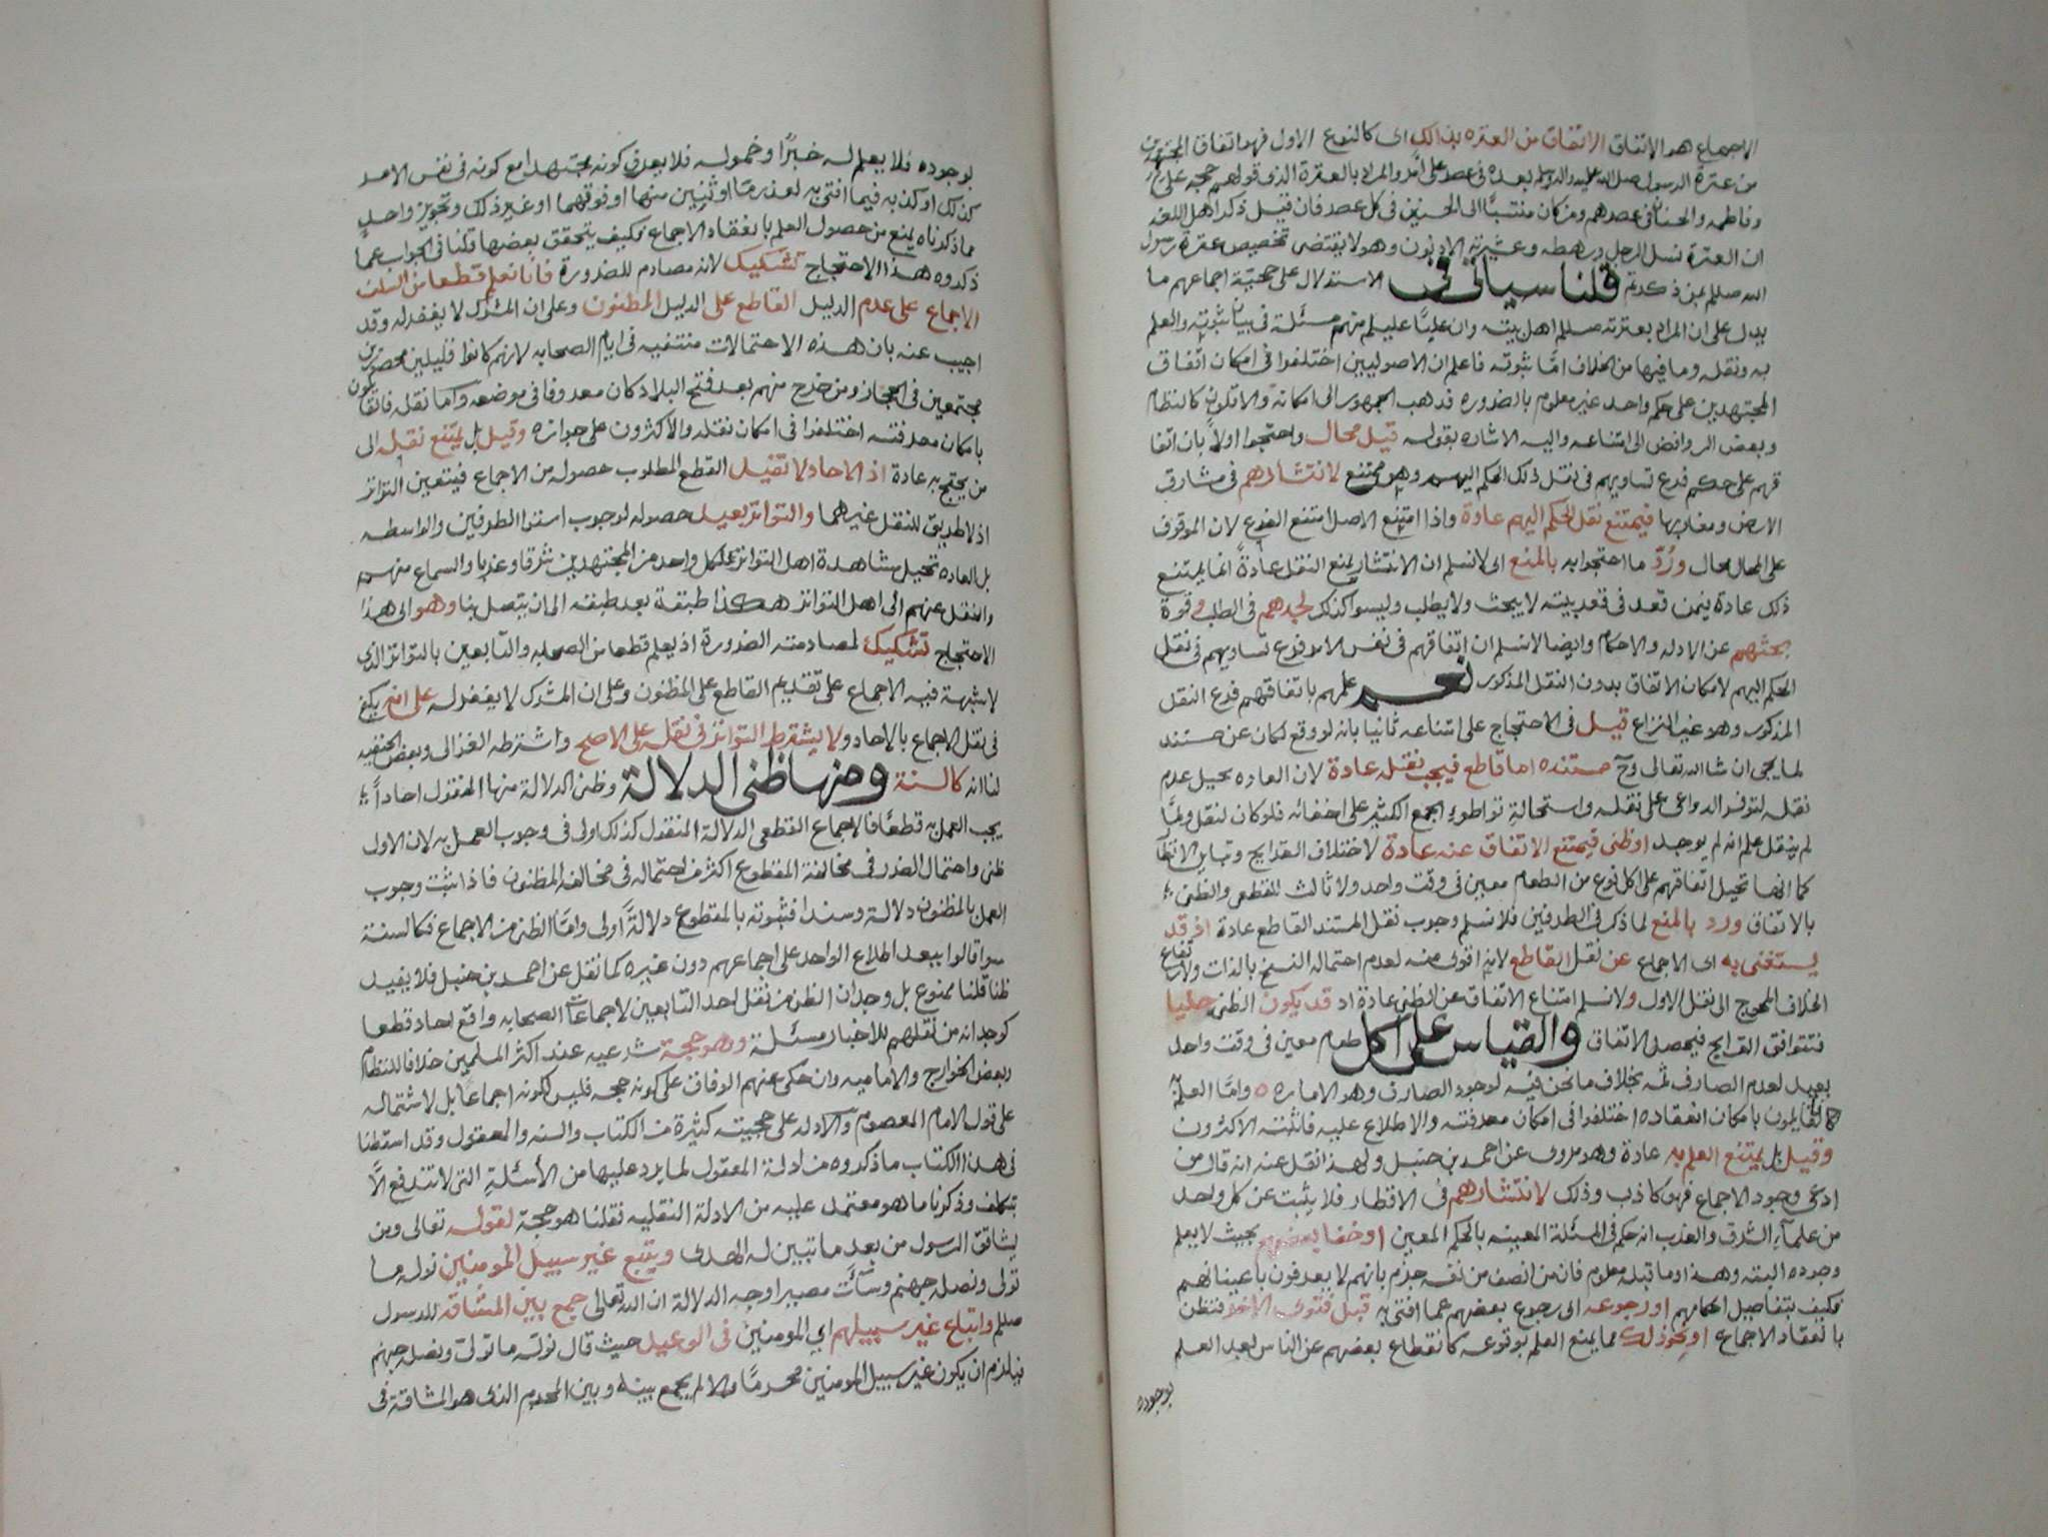 الاجماع هو الاتفاق الاتفاق من العتره بذالك اى كالنوع الاول فهو اتفاق المجتهدين
من عترة الرسول صلى الله عليه واله وسلم بعده فى عصر على امر والمراد بالعترة الذى قولهم حجه على
وفاطمه والحسنان فى عصرهم ومن كان منتسبًا الى الحسنين فى كل عصر فان قيل ذكر اهل اللغه
ان العترة نسل الرجل ورهطه وعشيرته الادنون وهو لا يقتضى تخصيص عترة رسول
الله صللم بمن ذكرتم قلنا سياتى فى الاستدلال على حجيّة اجماعهم ما
يدل على ان المراد بعترته صللم اهل بيته وان عليًّا عليلم منهم مسئلة فى بيان ثبوته والعلم
به ونقله وما فيها من الخلاف امّا ثبوته فاعلم ان الاصوليين اختلفوا فى امكان اتّفاق
المجتهدين على حكم واحد غير معلوم بالضروره فذهب الجمهور الى امكانه والاقلون كالنظام
وبعض الروافض الى امتناعه واليه الاشاره بقوله قيل محال واحتجوا اولاً بان اتفا
قهم على حكم فرع تساويهم فى نقل ذلك الحكم اليهم وهو ممتنع لانتشارهم فى مشارق
الارض ومغاربها فيمتنع نقل الحكم اليهم عادة واذا امتنع الاصل امتنع الفرع لان الموقوف
على المحال محال ورُدّ ما احتجوا به بالمنع اى لا نسلم ان الانتشار يمنع النقل عادةً انما يمتنع
ذلك عادة فيمن قعد فى قعر بيته لا يبحث ولا يطلب وليسوا كذلك لجدهم فى الطلب وقوة
بحثهم عن الادله والاحكام وايضا لا نسلم ان اتفاقهم فى نفس الامر فرع تساويهم فى نقل
الحكم اليهم لامكان الاتفاق بدون النقل المذكور نعم علمهم باتفاقهم فرع النقل
المذكور وهو غير النزاع قيل فى الاحتجاج على امتناعه ثانيا بانه لو وقع لكان عن مستند
لما يجى ان شا الله تعالى وح مستنده اما قاطع فيجب نقله عادة لان العاده تحيل عدم
نقله لتوفر الدواعى على نقله واستحالة تواطوء الجمع الكثير على اخفائه فلو كان لنقل ولمّا
لم ينقل علم انه لم يوجد او ظنى فيمتنع الاتفاق عنه عادة لاختلاف القرايح وتباين الانظار
كما انها تحيل اتفاقهم على اكل نوع من الطعام معين فى وقت واحد ولا ثالث للقطعى والظنى
بالاتفاق ورد بالمنع لما ذكر فى الطرفين فلا نسلم وجوب نقل المستند القاطع عادة اذ قد
يستغنى به اى الاجماع عن نقل القاطع لانه اقوى منه لعدم احتماله النسخ بالذات ولارتفاع
الخلاف المحوج الى نقل الاول ولا نسلم امتناع الاتفاق عن الظنى عادة اذ قد يكون الظنى جليا
فتتوافق القرايح فيحصل الاتفاق والقياس على اكل طعام معين فى وقت واحد
بعيد لعدم الصارف ثمه بخلاف ما نحن فيه لوجود الصارف وهو الاماره ه وامّا العلم به
فالقايلون بامكان انعقاده اختلفوا فى امكان معرفته والاطلاع عليه فاثبته الاكثرون
وقيل بل يمتنع العلم به عادة وهو مروى عن احمد بن حنبل ولهذا نقل عنه انه قال من
ادعى وجود الاجماع فهو كاذب وذلك لانتشارهم فى الاقطار فلا يثبت عن كل واحد
من علمآء الشرق والغرب انه حكم فى المسئلة المعينه بالحكم المعين او خفا بعضهم بحيث لا يعلم
وجوده البته وهذا وما قبله معلوم فان من انصف من نفسه جزم بانهم لا يعرفون باعيانهم
فكيف بتفاصيل احكامهم او رجوعه اى رجوع بعضهم عما افتى به قبل فتوى الاخر فتظن
بانعقاد الاجماع او نحو ذلك مما يمنع العلم بوقوعه كانقطاع بعضهم عن الناس بعد العلم
بوجوده
بوجوده فلا يعلم له خبرًا وخموله فلا يعرف كونه مجتهدا مع كونه فى نفس الامر
كذلك او كذبه فيما افتى به لعذر مّا او ثنيين منها او فوقهما او غير ذلك وتجويز واحد
مما ذكرناه يمنع من حصول العلم بانعقاد الاجماع فكيف يتحقق بعضها قلنا فى الجواب عما
ذكروه هذا الاحتجاج تشكيك لانه مصادم للضرورة فانا نعلم قطعا من السلف
الاجماع على عدم الدليل القاطع على الدليل المظنون وعلى ان المشرك لا يغفر له وقد
اجيب عنه بان هذه الاحتمالات منتفيه فى ايام الصحابه لانهم كانوا قليلين محصورين
مجتمعين فى الحجاز ومن خرج منهم بعد فتح البلاد كان معروفا فى موضعه واما نقله فالقايلون
بامكان معرفته اختلفوا فى امكان نقله والاكثرون على جوازه وقيل بل يمتنع نقله الى
من يحتج به عادة اذ الاحاد لا تفيد القطع المطلوب حصوله من الاجماع فيتعين التواتر
اذ لا طريق للنقل غيرهما والتواتر بعيد حصوله لوجوب استوا الطرفين والواسطه
بل العاده تحيل مشاهدة اهل التواتر لكل واحد من المجتهدين شرقا وغربا والسماع منهم
والنقل عنهم الى اهل التواتر هكذا طبقة بعد طبقه الى ان يتصل بنا وهو اى هذا
الاحتجاج تشكيك لمصادمته الضرورة اذ يعلم قطعا من الصحابه والتابعين بالتواتر الذى
لا شبهة فيه الاجماع على تقديم القاطع على المظنون وعلى ان المشرك لا يغفر له على انه يكفى
فى نقل الاجماع بالاحاد ولا يشترط التواتر فى نقله على الاصح واشترطه الغزالى وبعض الحنفيه
لنا انه كالسنة ومنها ظنى الدلالة وظنى الدلالة منها المنقول احاداً
يجب العمل به قطعًا فالاجماع القطعى الدلالة المنقول كذلك اولى فى وجوب العمل به لان الاول
ظنى واحتمال الضرر فى مخالفة المقطوع اكثر من احتماله فى مخالفه المظنون فاذا ثبت وجوب
العمل بالمظنون دلالة وسندا فثبوته بالمقطوع دلالةً اولى وامّا الظنى من الاجماع فكالسنة
سوا قالوا يبعد اطلاع الواحد على اجماعهم دون غيره كما نقل عن احمد بن حنبل فلا يفيد
ظنا قلنا ممنوع بل وجدان الظن من نقل احد التابعين لاجماعات الصحابه واقع لحاد قطعا
كوجدانه من نقلهم للاخبار مسئلة وهو حجة شرعيه عند اكثر المسلمين خلافا للنظام
وبعض الخوارج والاماميه وان حكى عنهم الوفاق على كونه حجه فليس لكونه اجماعا بل لاشتماله
على قول الامام المعصوم والادله على حجيته كثيرة من الكتاب والسنه والمعقول وقد اسقطنا
فى هذا الكتاب ما ذكروه من ادلة المعقول لما يرد عليها من الأسئلة التى لا تندفع الّا
بتكلف وذكرنا ما هو معتمد عليه من الادلة النقليه فقلنا هو حجة لقوله تعالى ومن
يشاقق الرسول من بعد ما تبين له الهدى ويتبع غير سبيل المومنين نوله ما
تولى ونصله جهنم وسآءت مصيرا وجه الدلالة ان الله تعالى جمع بين المشاقه للرسول
صللم واتباع غير سبيلهم اى المومنين فى الوعيد حيث قال نولّه ما تولّى ونصله جهنم
فيلزم ان يكون غير سبيل المومنين محرمًا والا لم يجمع بينه وبين المحرم الذى هو المشاقة فى